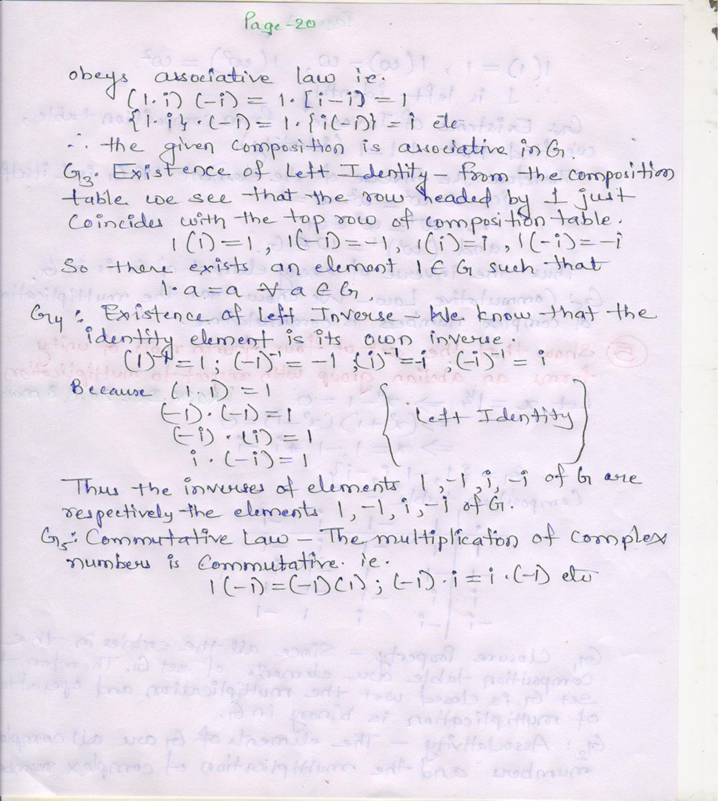 Page-20
obeys associative law ie.
(1·i)(-i) = 1·[i-i] = 1
{1·i}·(-1) = 1·{i(-1)} = i etc
∴ the given composition is associative in G.
G3: Existence of Left Identity - From the composition
table we see that the row headed by 1 just
Coincides with the top row of composition table.
1(1)=1, 1(-1)=-1, 1(i)=i, 1(-i)=-i
So there exists an element 1∈G such that
1·a=a ∀ a∈G.
G4: Existence of Left Inverse - We know that the
identity element is its own inverse.
(1)⁻¹=1; (-1)⁻¹=-1, (i)⁻¹=-i, (-i)⁻¹=i
Because (1,1)=1
(-1)·(-1)=1
(-i)·(i)=1
i·(-i)=1
{Left Identity}
Thus the inverses of elements 1,-1,i,-i of G are
respectively the elements 1,-1,i,-i of G.
G5: Commutative Law - The multiplication of complex
numbers is commutative. ie.
1(-1)=(-1)(1); (-1)·i=i·(-1) etc